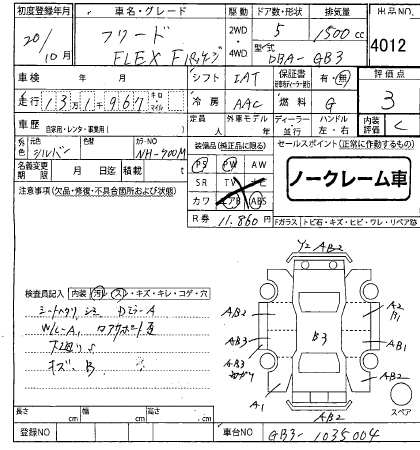 初度登録年月 車名・グレード 駆動 ドア数・形状 排気量 出品NO.
20/10月 フリード FLEX Fパッケージ 2WD 4WD 5 1500cc 4012
型式 DBA-GB3
車検 年 月 シフト IAT 保証書 有・無 評価点 3
走行 13万1967 キロ マイル 冷房 AAC 燃料 G
車歴 自家用・レンタ・事業用( ) 定員 人 外車モデル 年 ディーラー 並行 ハンドル 左・右 内装評価 C
外色 元色 シルバー 色替 カラーNO NH-700M
装備品(純正品に限る)
セールスポイント(正常に作動するもの)
名義変更期限 月 日迄 積載 t
PS PW AW
SR TV ナビ
カワ エアB ABS
R券 11.860円
ノークレーム車
注意事項(欠品・修復・不具合箇所および状態)
Fガラス トビ石・キズ・ヒビ・ワレ・リペア跡
検査員記入 内装 汚れ・スレ・キズ・キレ・コゲ・穴
シートヘタリ シミ DミラーA
W/L-A
下廻りS
キズ、B
Y2 AB2
AB2
AB3
AB3
A1
B3
A2
B1
AB1
AB2
AB2
スペア
長さ cm 幅 cm 高さ cm
登録NO 車台NO GB3-1035004